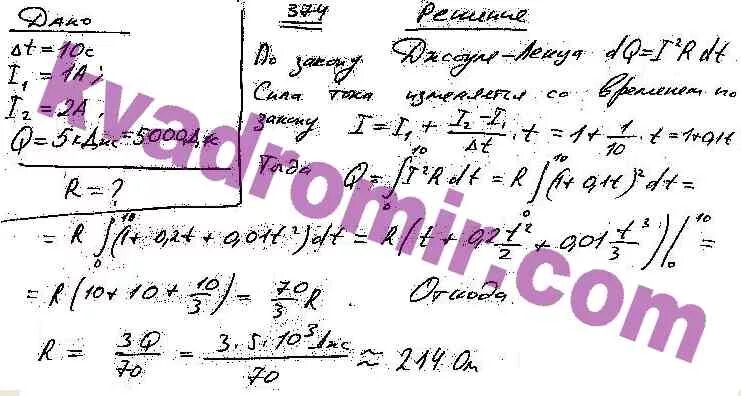 Дано
Δt = 10с
I₁ = 1А;
I₂ = 2А
Q = 5кДж = 5000Дж
R = ?
374
Решение
По закону Джоуля-Ленца dQ = I²R dt
Сила тока изменяется со временем по
закону I = I₁ + (I₂-I₁)/Δt · t = 1 + 1/10 · t = 1+0,1t
Тогда Q = ∫₀¹⁰ I²R dt = R ∫₀¹⁰ (1+0,1t)² dt =
= R ∫₀¹⁰ (1 + 0,2t + 0,01t²) dt = R (t + 0,2 t²/2 + 0,01 t³/3) |₀¹⁰ =
= R (10 + 10 + 10/3) = 70/3 R. Откуда
R = 3Q/70 = 3·5·10³Дж/70 ≈ 214 Ом
kvadromir.com